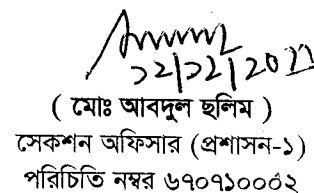 ১২/১২/2011
( মোঃ আবদুল ছলিম )
সেকশন অফিসার (প্রশাসন-১)
পরিচিতি নম্বর ৬৭০৭১০০০২